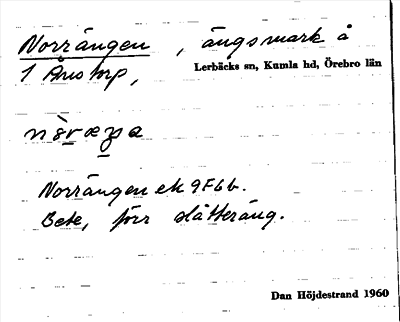 Norrängen, ängsmark å
1 Ånstorp, Lerbäcks sn, Kumla hd, Örebro län
Norrängen ek 9F6b.
Bete, förr slåtteräng.
Dan Höjdestrand 1960